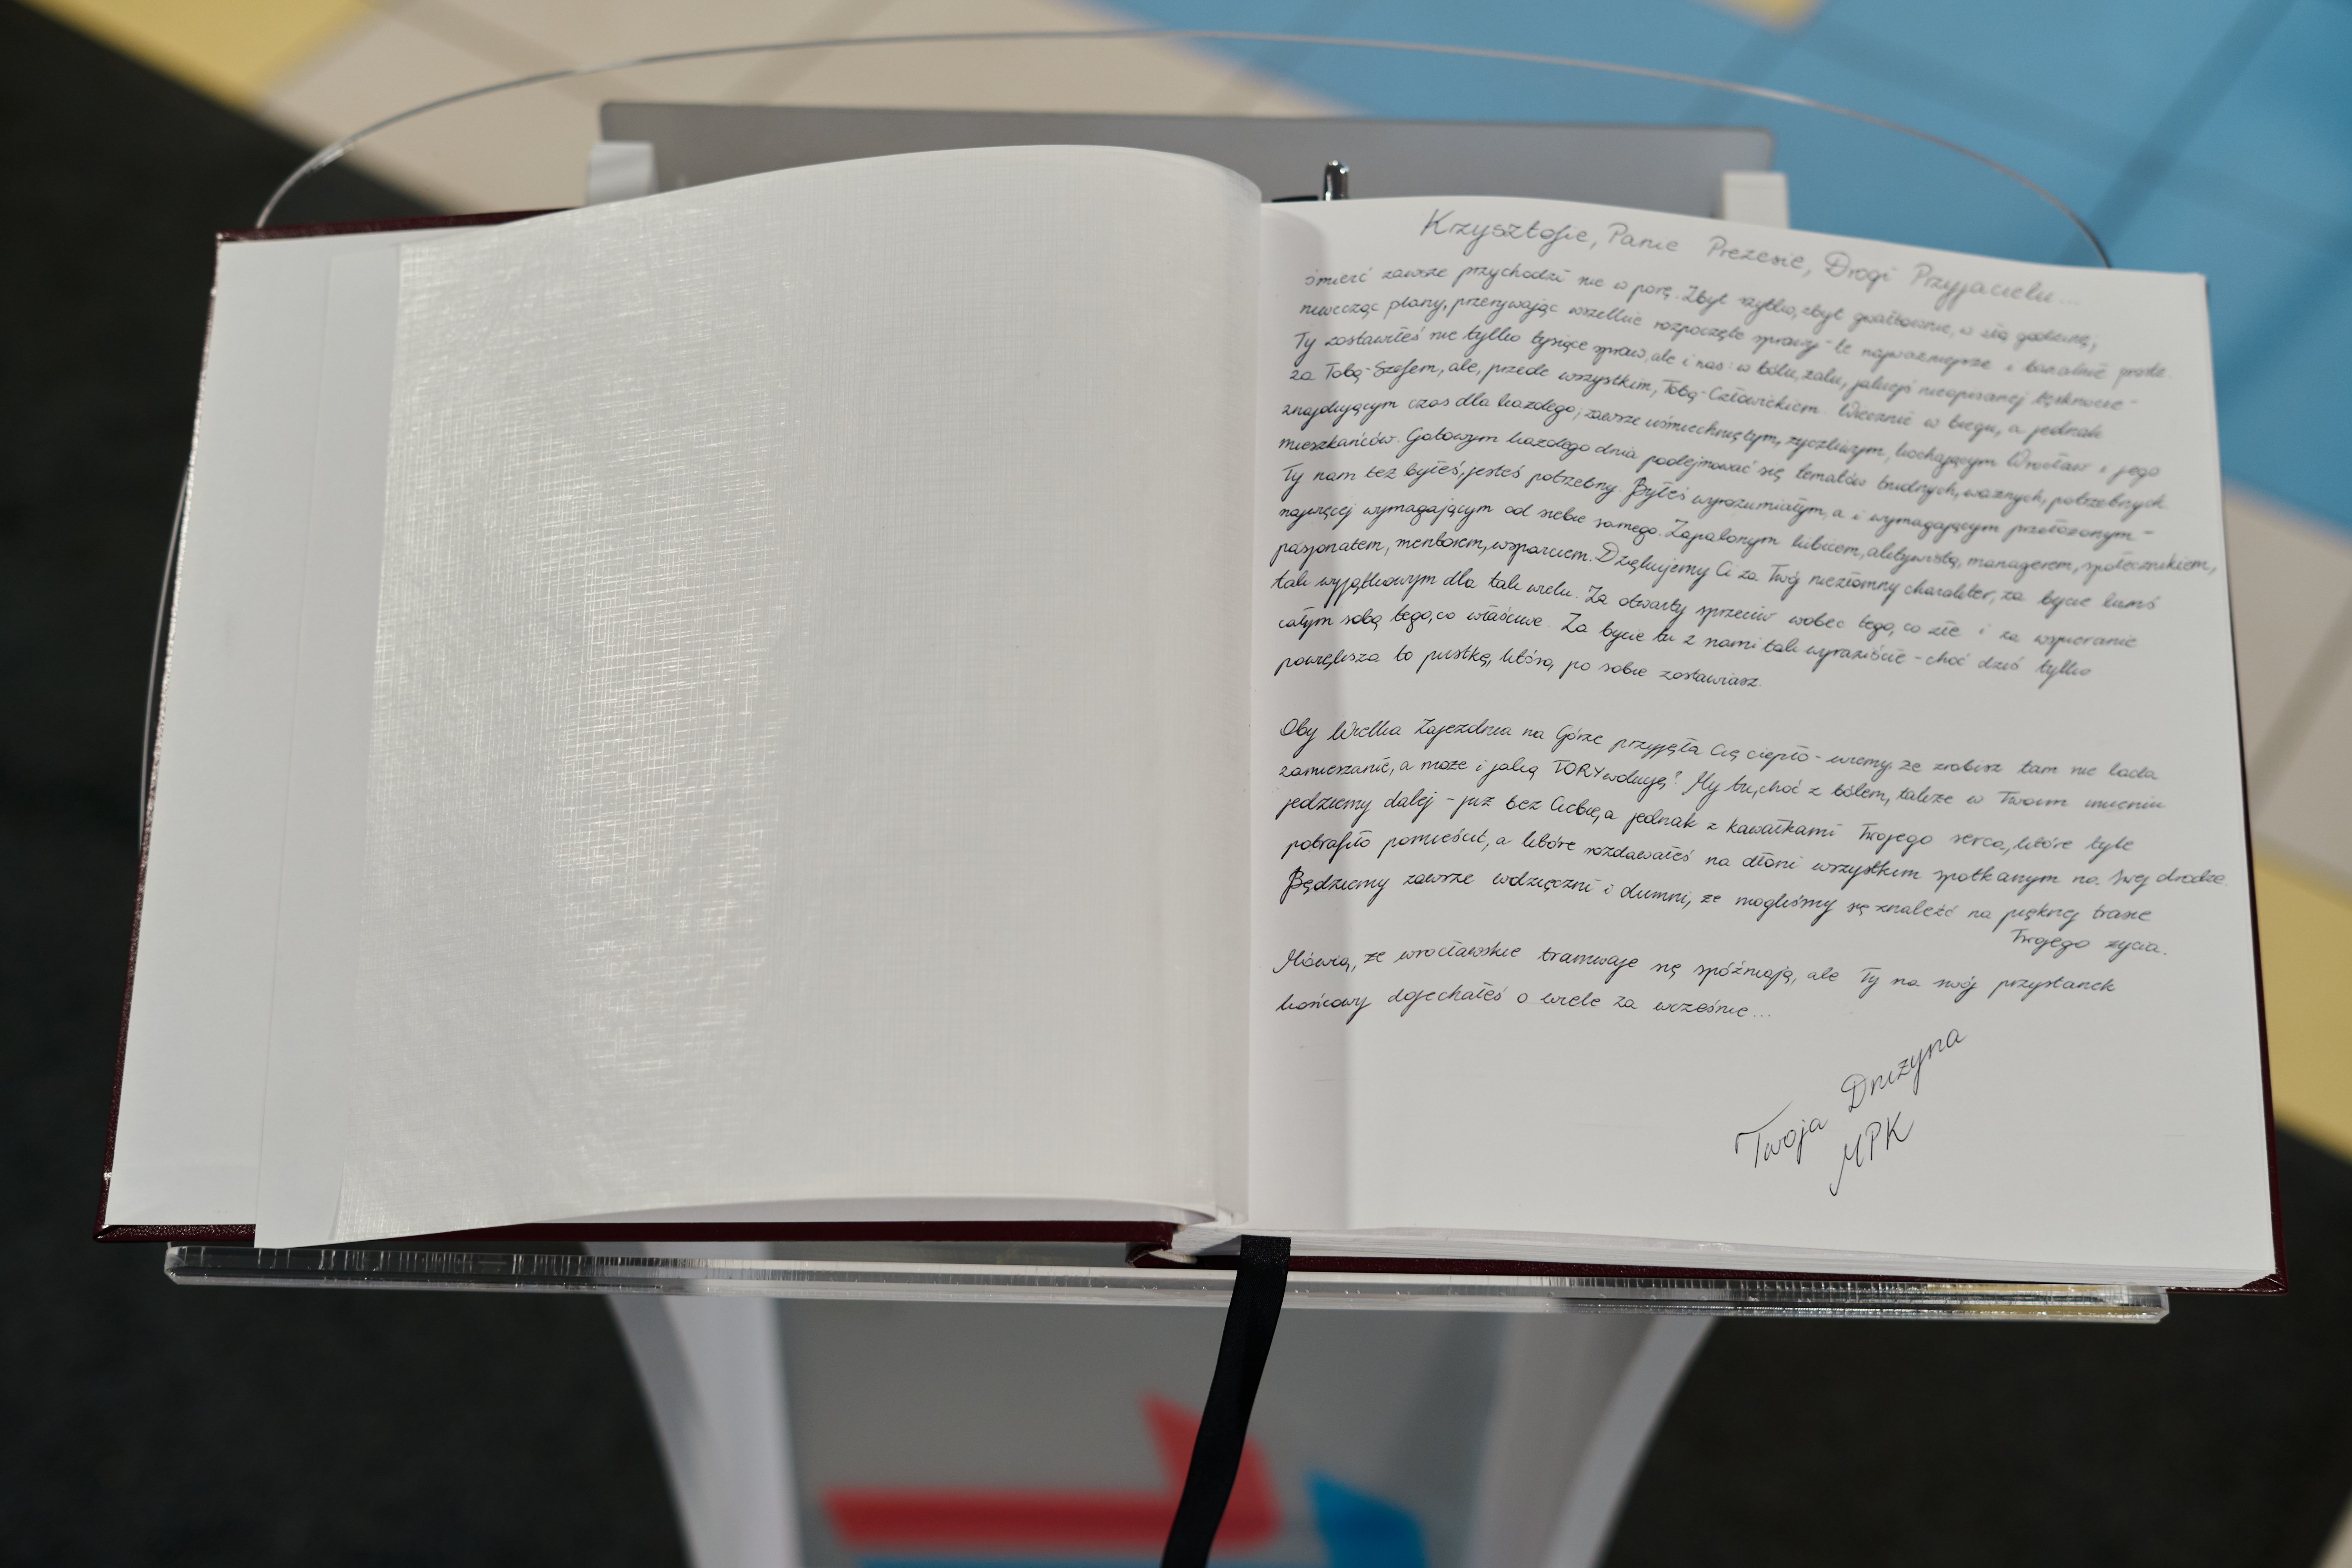 Krzysztofie, Panie Prezesie, Drogi Przyjacielu...
śmierć zawsze przychodzi nie w porę. Zbyt szybko, zbyt gwałtownie, w złą godzinę,
niwecząc plany, przerywając wszelkie rozpoczęte sprawy - te najważniejsze i banalnie proste.
Ty zostawiłeś nie tylko tysiące spraw, ale i nas: w bólu, żalu, jakiejś nieopisanej tęsknocie -
za Tobą - Szefem, ale, przede wszystkim, Tobą - Człowiekiem. Wiecznie w biegu, a jednak
znajdującym czas dla każdego, zawsze uśmiechniętym, życzliwym, kochającym Wrocław i jego
mieszkańców. Gotowym każdego dnia podejmować się tematów trudnych, ważnych, potrzebnych.
Ty nam też byłeś, jesteś potrzebny. Byłeś wyrozumiałym, a i wymagającym przełożonym -
najwięcej wymagającym od siebie samego. Zapalonym kibicem, aktywistą, managerem, społecznikiem,
pasjonatem, mentorem, wsparciem. Dziękujemy Ci za Twój niezłomny charakter, za bycie kimś
tak wyjątkowym dla tak wielu. Za otwarty sprzeciw wobec tego, co złe i za wspieranie
całym sobą tego, co właściwe. Za bycie tu z nami tak wyraziście - choć dziś tylko
powiększa to pustkę, którą po sobie zostawiasz.
Oby Wielka Zajezdnia na Górze przyjęła Cię ciepło - wiemy, że zrobisz tam nie lada
zamieszanie, a może i jakąś TORYwolucję? My tu, choć z bólem, także w Twoim imieniu
jedziemy dalej - już bez Ciebie, a jednak z kawałkami Twojego serca, które tyle
potrafiło pomieścić, a które rozdawałeś na dłoni wszystkim spotkanym na swej drodze.
Będziemy zawsze wdzięczni i dumni, że mogliśmy się znaleźć na pięknej trasie
Twojego życia.
Mówią, że wrocławskie tramwaje się spóźniają, ale Ty na swój przystanek
końcowy dojechałeś o wiele za wcześnie...
Twoja Drużyna
MPK